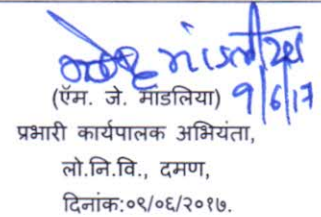 9/6/17
(ऍम. जे. मांडलिया)
प्रभारी कार्यपालक अभियंता,
लो.नि.वि., दमण,
दिनांक:०९/०६/२०१७.